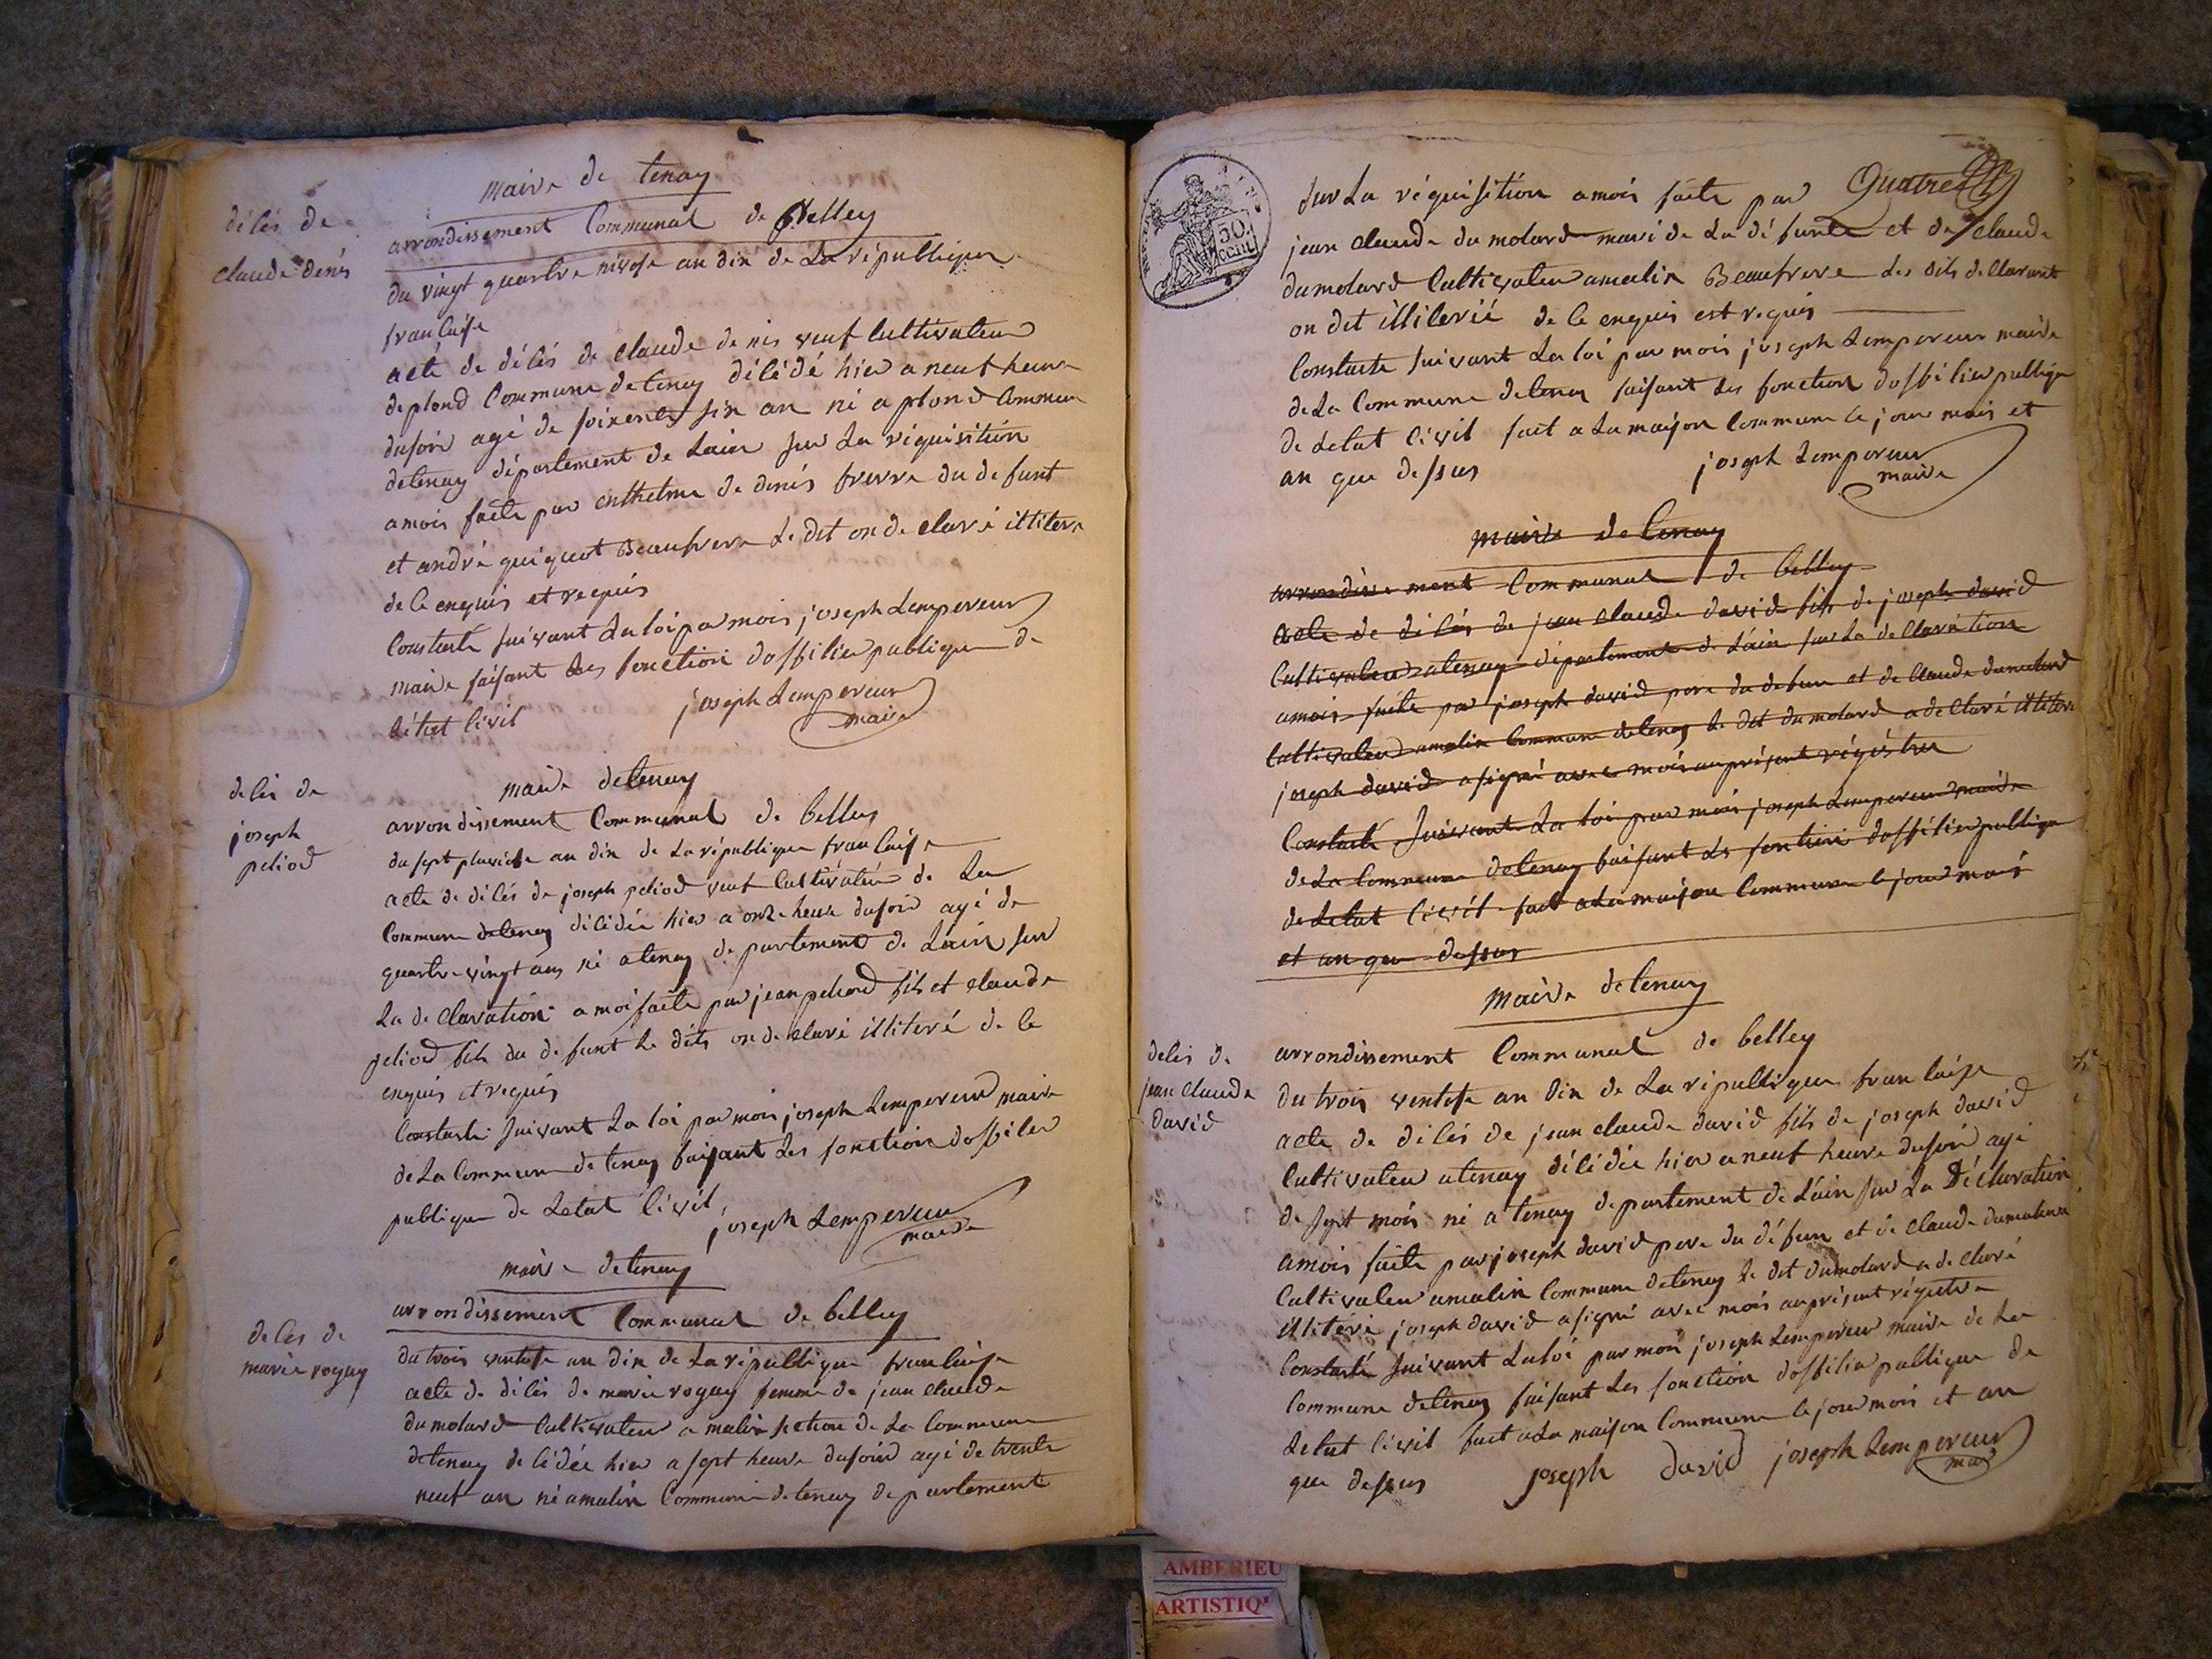 maire de tenay
décés de
claude denis
arrondissement Communal de Belley
du vingt quartre nivose an dix de La république
francaise
acte de décés de claude denis veuf cultivateur
de plond Commune de tenay décédé hier a neuf heure
du soir agé de soixente six an né a plond Commune
de tenay département de Lain sur La réquisition
a mois faite par enthelme de denis frerre du defunt
et andré quiquet Beaufrere Le dit on declaré illitere
de ce enquis et requis
Constasté suivant La loi par mois joseph Lempereur
maire faisant Les fonction dofficier publique de
Létat civil
joseph Lempereur
maire
maire de tenay
deces de
joseph
peliod
arrondissement Communal de belley
du sept pluviose an dix de La république francaise
acte de décés de joseph peliod veuf cultivateur de La
Commune de tenay décédée hier a onze heure du soir agé de
quartre-vingt ans né a tenay departement de Lain sur
La declaration a moi faite par jean peliod fils et claude
peliod fils du defunt Le dits on declaré illiteré de ce
enquis et requis
Constasté suivant La loi par mois joseph Lempereur maire
de La Commune de tenay faisant Les fonction dofficier
publique de Letat civil
joseph Lempereur
maire
maire de tenay
deces de
marie rogay
arrondissement Communal de belley
du trois ventose an dix de La république francaise
acte de décés de marie rogay femme de jean claude
dumolard cultivateur a malix section de La Commune
de tenay decédée hier a sept heure du soir agé de trente
neuf an né a malix Commune de tenay departement
Quatre
sur La réquisition a mois faite par
jean claude dumolard mari de La défunte et de claude
dumolard cultivateur a malix Beaufrere Les dits declarant
on dit illiterié de ce enquis est requis
Constaste suivant La loi par mois joseph Lempereur maire
de La Commune de tenay faisant Les fonction dofficier publique
de Letat civil fait a La maison Commune le jour mois et
an que dessus
joseph Lempereur
maire
50
cent
maire de tenay
arrondissement Communal de belley
acte de décés de jean claude david fils de joseph david
cultivateur a tenay département de Lain sur La declaration
a mois faite par joseph david pere du defun et de claude dumolard
cultivateur a malix Commune de tenay Le dit dumolard a declaré illitere
joseph david a signé avec mois au présent régistre
Constasté suivant La loi par mois joseph Lempereur maire
de La Commune de tenay faisant Les fontion dofficier publique
de Letat civil fait a La maison Commune le jour mois
et an que dessus
maire de tenay
deces de
jean claude
david
arrondissement Communal de belley
du trois ventose an dix de La république francaise
acte de décés de jean claude david fils de joseph david
cultivateur a tenay décédée hier a neuf heure du soir agé
de sept mois né a tenay departement de Lain sur La Déclaration
a mois faite par joseph david pere du défun et de claude dumolard
cultivateur a malix Commune de tenay Le dit dumolard a declaré
illiteré joseph david a signé avec mois au présent régistre
Constasté suivant La loi par moi joseph Lempereur maire de La
Commune de tenay faisant Les fonction dofficier publique de
Letat civil fait a La maison Commune le jour mois et an
que dessus
joseph david
joseph Lempereur
maire
AMBERIEU
ARTISTIQ